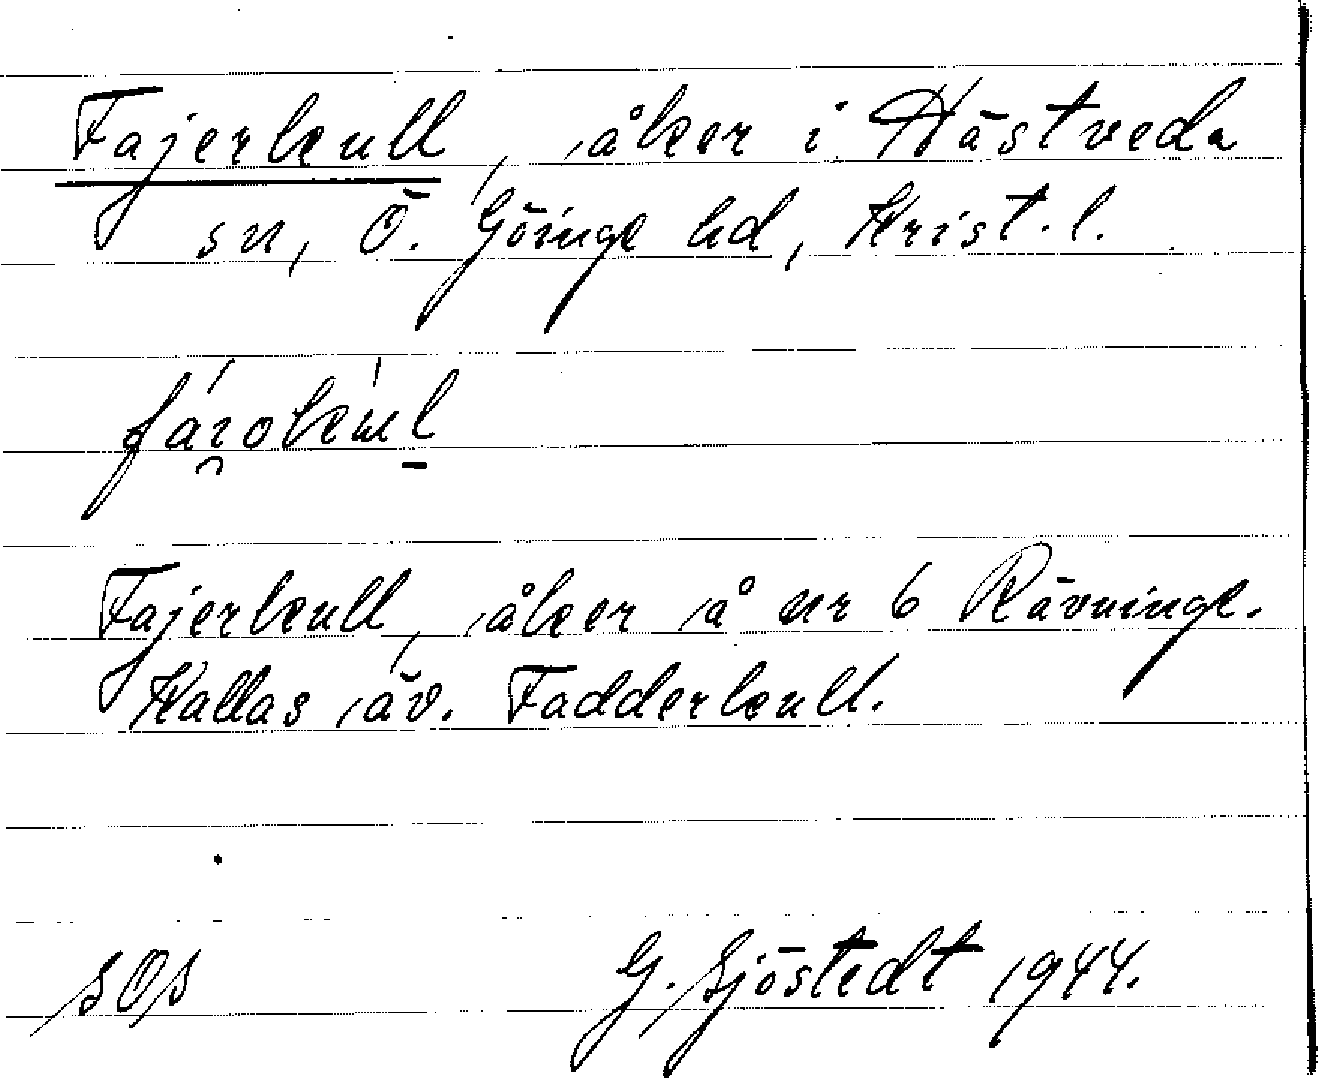 Fajerkull, åker i Hästveda
sn, Ö. Göinge hd, Krist. l.
Fajerkull, åker å nr 6 Rävninge.
Kallas äv. Fadderkull.
SOS G. Sjöstedt 1944.